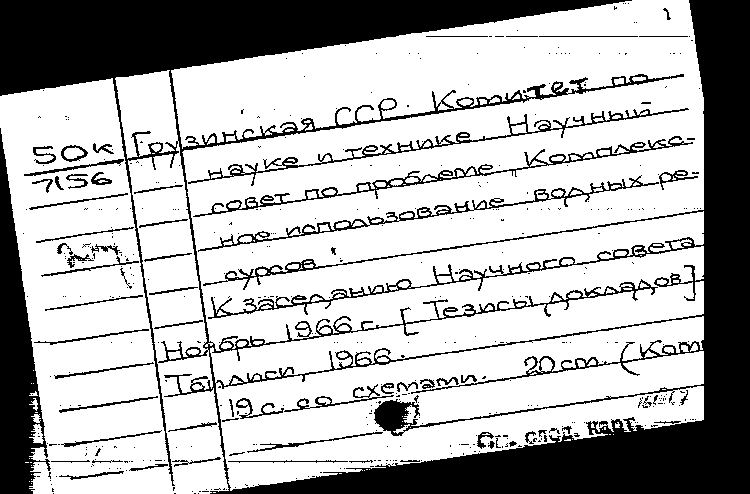 50к Грузинская ССР. Комитет по
7156 науке и технике. Научный
совет по проблеме „Комплекс-
ное использование водных ре-
сурсов".
К заседанию Научного совета
Ноябрь 1966 г. [Тезисы докладов].
Тбилиси, 1966.
19 с. со схемами. 20 см. (Ком
См. след. карт.